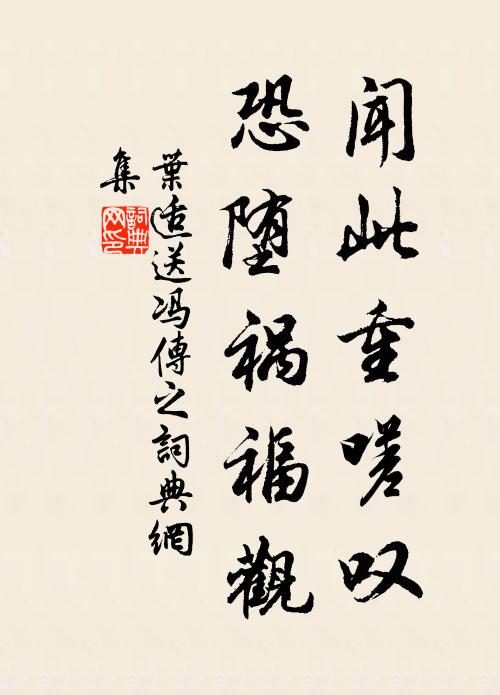 闻此重嗟叹
恐堕祸福觀
葉适送冯傅之詞典網
集
詞典
网印